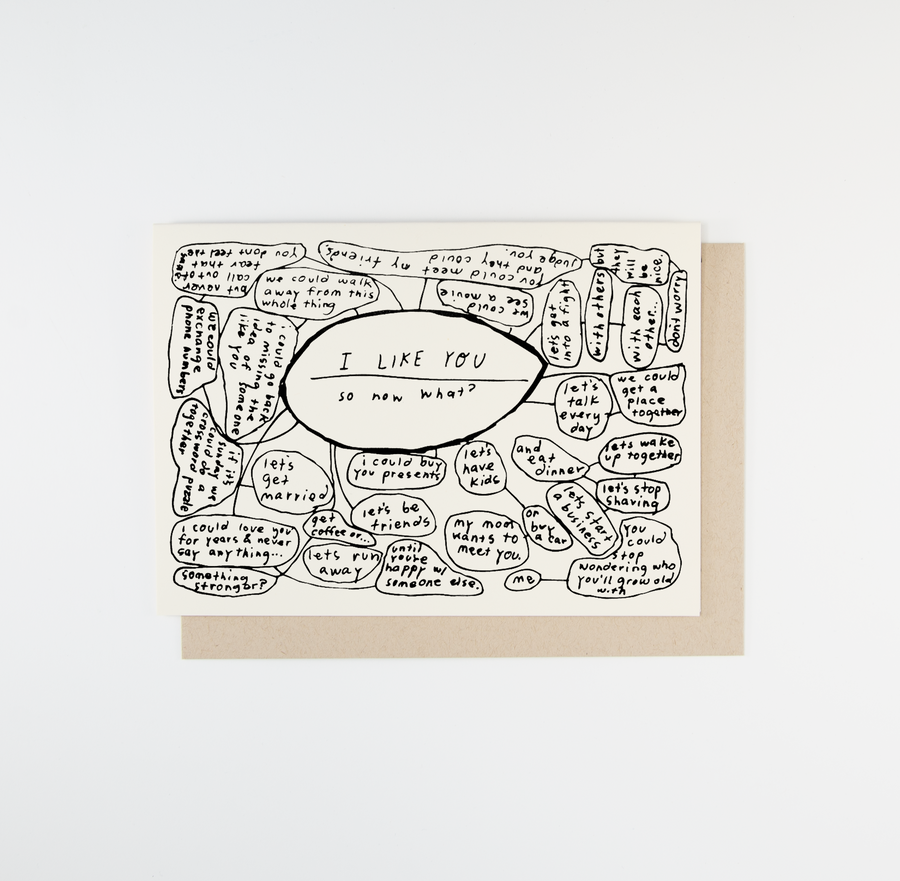 I LIKE YOU
so now what?
you dont feel the
fear that
call out of
but never
need.
you could meet my friends
and they could
judge you.
but
they
will
be
nice.
we could walk
away from this
whole thing
we could
see a movie
let's get
into a fight
with others
with each
other...
dont worry
we could
exchange
phone numbers
i could go back
to missing the
idea of someone
like you
let's
talk
every
day
we could
get a
place
together
if it's
sunday we
could do a
crossword puzzle
together
lets
get
married
i could buy
you presents
let's
have
kids
and
eat
dinner
lets wake
up together
let's stop
shaving
lets start
a business
or
buy
a car
let's be
friends
get
coffee or...
my mom
wants to
meet you.
i could love you
for years & never
say anything...
lets run
away
until
you're
happy w/
someone else.
something
stronger?
me
you
could
stop
wondering who
you'll grow old
with